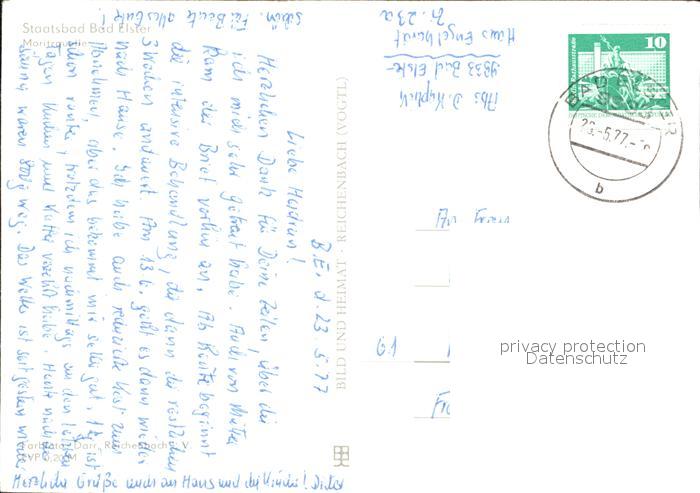 Staatsbad Bad Elster
Moritzquelle
B. E. d. 23. 5. 77
Liebe Heidrun!
Herzlichen Dank für Deine Zeilen, über die
ich mich sehr gefreut habe. Auch von Mutter
kam der Brief vorhin an. Ab heute beginnt
die intensive Behandlung, die dann die restlichen
3 Wochen andauert. Am 13.6. geht es dann wieder
nach Hause. Ich habe auch reduzierte Kost zum
Abnehmen, aber das bekommt mir sehr gut. Es ist
schon runter, trotzdem ich nachmittags an den letzten
Tagen Kuchen und Kaffee verzehrt habe. Heute
waren 800g weg. Das Wetter ist seit gestern wieder
schön. Für Heute alles Gute!
Herzliche Grüße auch an Hans und die Kinder! Dieter
Farbfoto: Darr, Reichenbach i. V.
EVP 0,20 M
BILD UND HEIMAT · REICHENBACH (VOGTL)
Abs. D.
9933 Bad Elster
Haus Engelhardt
Zi. 23a
10
DEUTSCHE DEMOKRATISCHE
BAD ELSTER
23.-5.77.
b
An Frau
privacy protection
Datenschutz